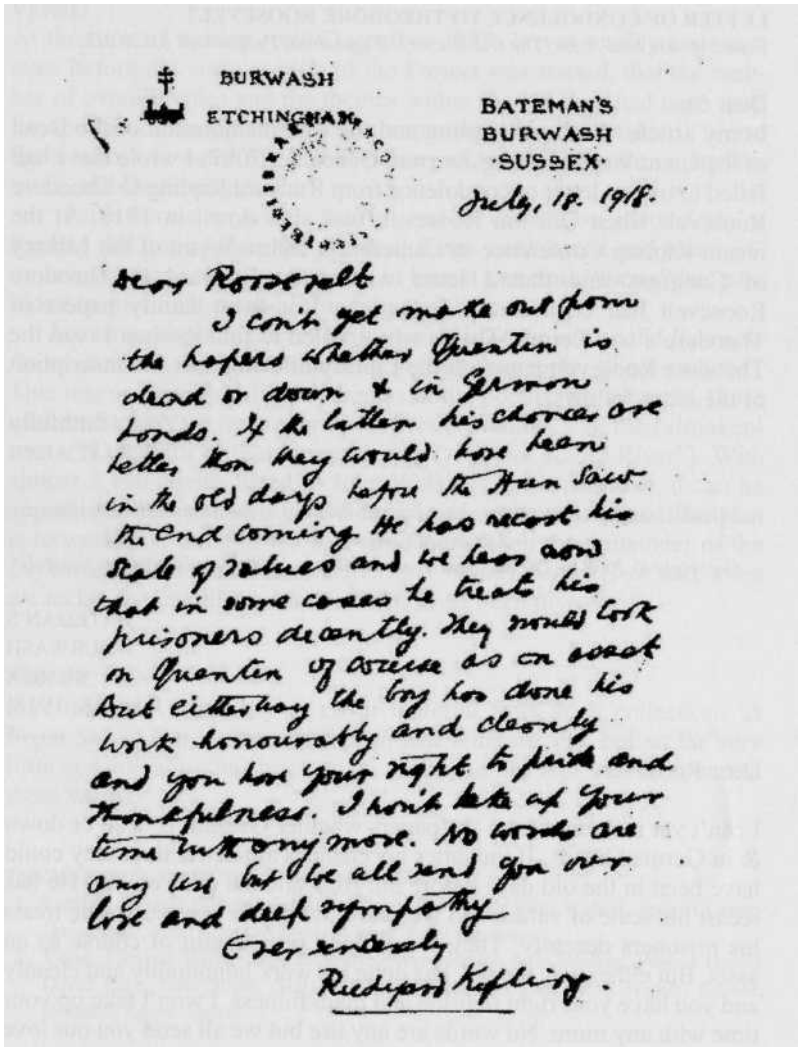 BURWASH
ETCHINGHAM
BATEMAN'S
BURWASH
SUSSEX
July. 18. 1918.
Dear Roosevelt
I can't yet make out from
the papers whether Quentin is
dead or down & in German
hands. If the latter his chances are
better than they would have been
in the old days before the Hun saw
the end coming. He has recast his
scale of values and we hear now
that in some cases he treats his
prisoners decently. They would look
on Quentin of course as an asset
But either way the boy has done his
work honourably and cleanly
and you have your right to pride and
thankfulness. I won't take up your
time with any more. No words are
any use but we all send you our
love and deep sympathy
Ever sincerely
Rudyard Kipling.